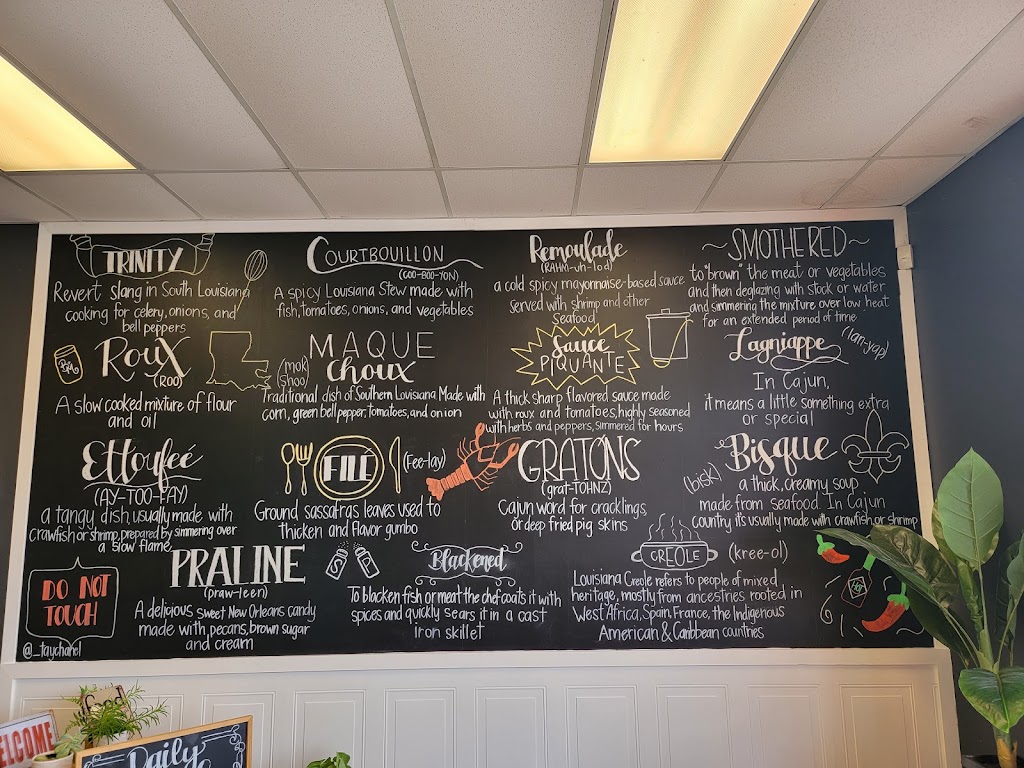 TRINITY
Revert slang in South Louisiana
cooking for celery, onions, and
bell peppers
COURTBOUILLON
(COO-BOO-YON)
A spicy Louisiana Stew made with
fish, tomatoes, onions, and vegetables
Remoulade
(RAHM-uh-lod)
a cold spicy mayonnaise-based sauce
served with shrimp and other
seafood
~SMOTHERED~
to "brown" the meat or vegetables
and then deglazing with stock or water
and simmering the mixture over low heat
for an extended period of time
ROUX
(ROO)
A slow cooked mixture of flour
and oil
MAQUE
choux
(mok)
(shoo)
Traditional dish of Southern Louisiana Made with
corn, green bell pepper, tomatoes, and onion
Sauce
PIQUANTE
A thick sharp flavored sauce made
with roux and tomatoes, highly seasoned
with herbs and peppers, simmered for hours
Lagniappe
(lan-yap)
In Cajun,
it means a little something extra
or special
Ettoufeé
(AY-TOO-FAY)
a tangy dish, usually made with
crawfish or shrimp, prepared by simmering over
a slow flame
FILÉ
(Fee-lay)
Ground sassafras leaves used to
thicken and flavor gumbo
GRATONS
(grat-TOHNZ)
Cajun word for cracklings,
or deep fried pig skins
Bisque
(bisk)
a thick, creamy soup
made from seafood. In Cajun
country it's usually made with crawfish or shrimp
DO NOT
TOUCH
@_taychanel
PRALINE
(praw-leen)
A delicious sweet New Orleans candy
made with pecans, brown sugar
and cream
Blackened
To blacken fish or meat the chef coats it with
spices and quickly sears it in a cast
iron skillet
CREOLE
(kree-ol)
Louisiana Creole refers to people of mixed
heritage, mostly from ancestries rooted in
West Africa, Spain, France, the Indigenous
American & Caribbean countries
WELCOME
Daily